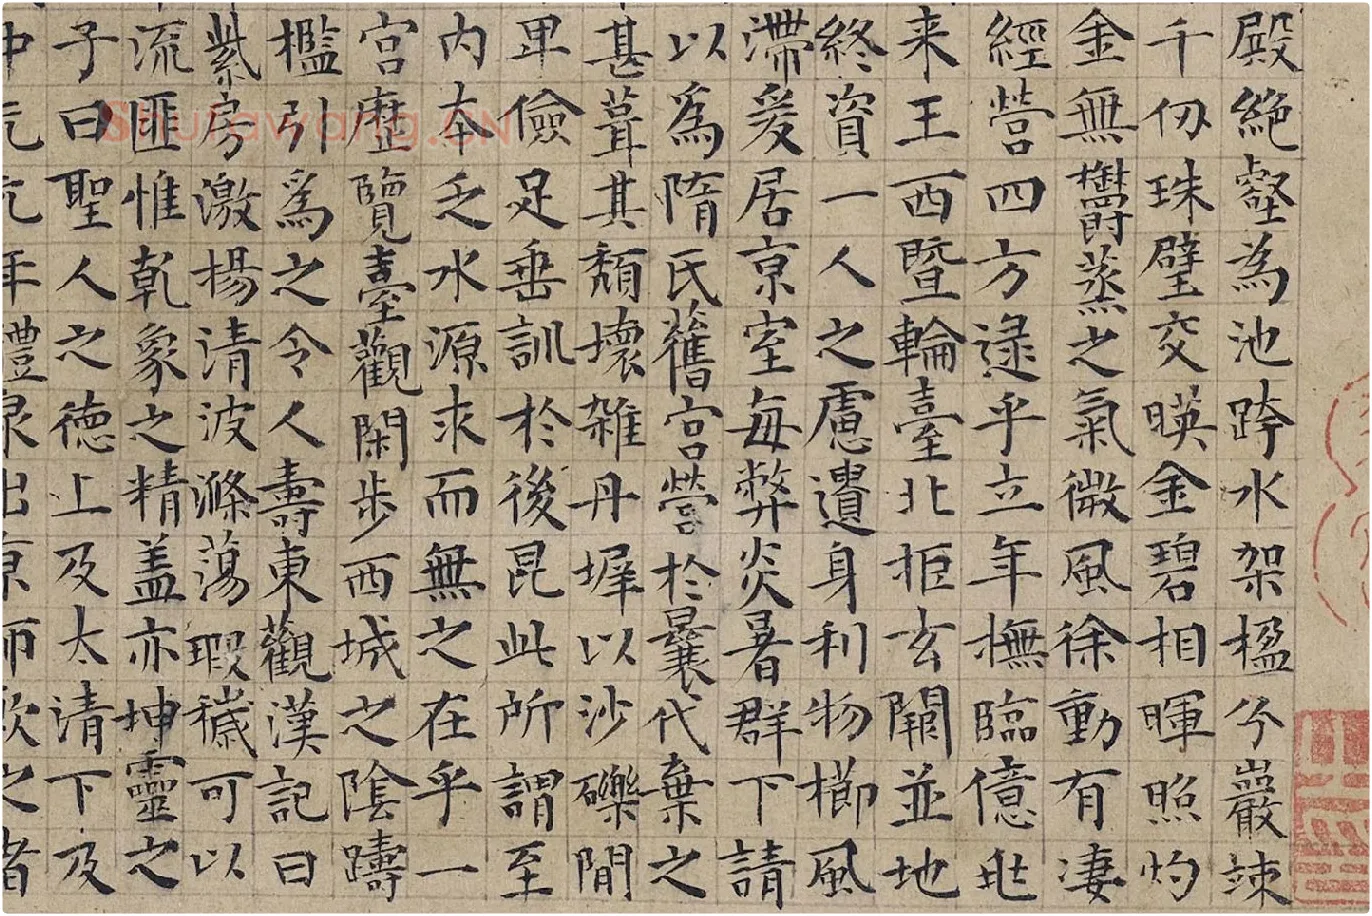 殿絕壑為池跨水架楹分巖竦
千仞珠璧交暎金碧相暉照灼
金無鬱蒸之氣微風徐動有凄
經營四方逮乎立年撫臨億兆
来王西暨輪臺北拒玄闕並地
終資一人之慮遺身利物櫛風
滯爰居京室每弊炎暑群下請
以為隋氏舊宮營於曩代棄之
甚葺其頹壞雜丹墀以沙礫間
卑儉足垂訓於後昆此所謂至
内本乏水源求而無之在乎一
宮歷覽臺觀閑步西城之陰躊
檻引為之令人壽東觀漢記曰
紫房激揚清波滌蕩瑕穢可以
流匪惟乾象之精盖亦坤靈之
子曰聖人之德上及太清下及
中元元年醴泉出京師飲之者
Shufawang.CN